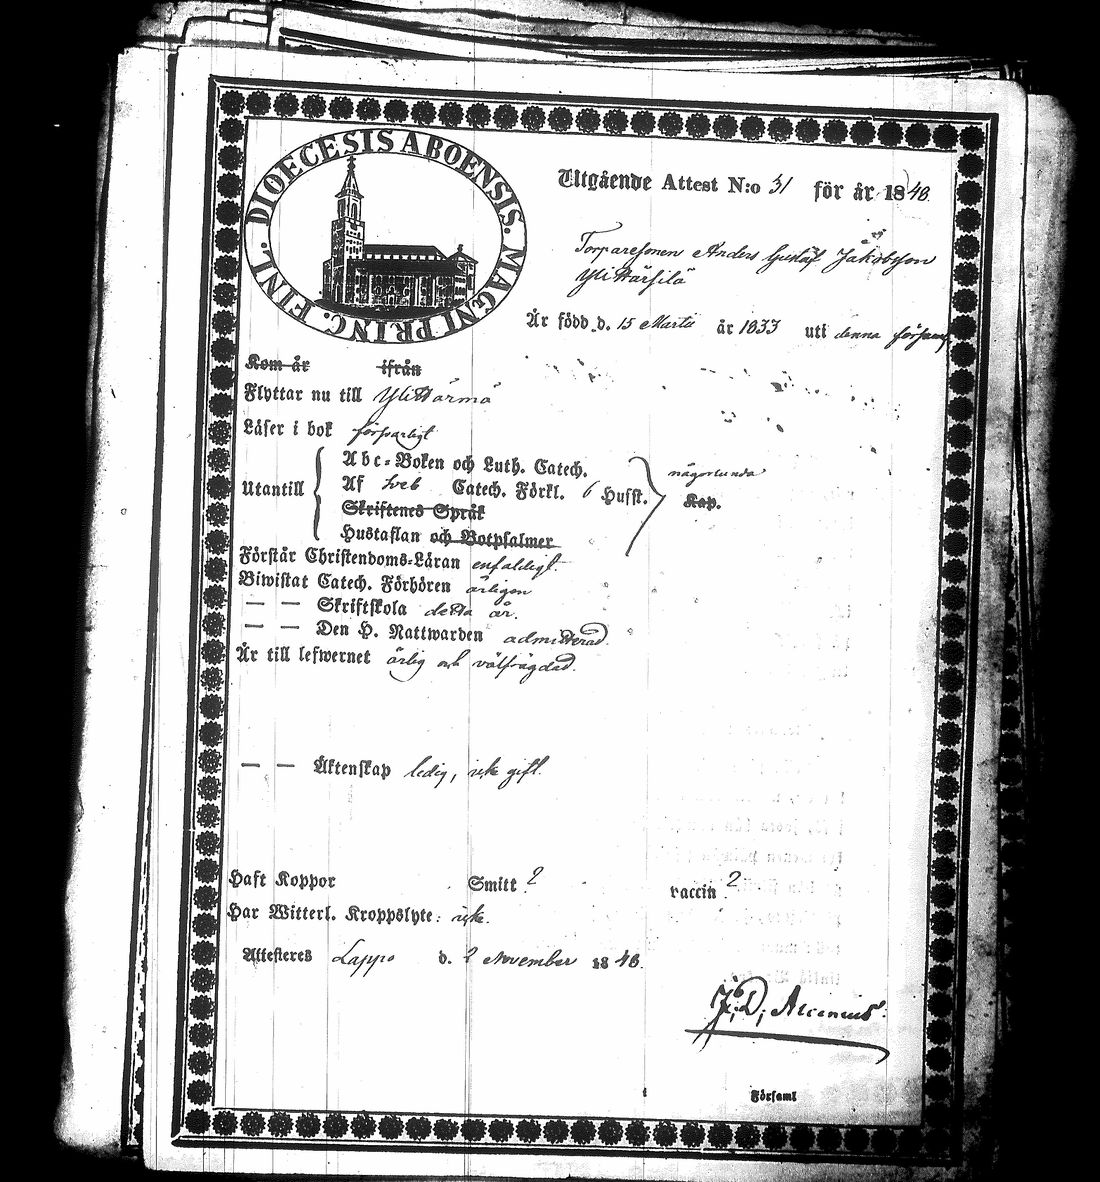 DIOECESIS ABOENSIS. MAGNI PRINC. FINL.
Utgående Attest N:o 31 för år 1848.
Torparesonen Anders Gustaf Jakobsson
YliHärsilä
Är född d. 15 Martii år 1833 uti denna församl
Kom år ifrån
Flyttar nu till YliHärmä
Läser i bok försvarligt
Utantill
Abc=Boken och Luth. Catech.
Af Sveb Catech. Förkl. 6 Hufst.
Skriftenes Språk
Hustaflan och Botpsalmer
någorlunda
Kap.
Förstår Christendoms-Läran enfaldigt.
Biwistat Catech. Förhören årligen
— — Skriftskola detta år.
— — Den H. Nattwarden admitterad.
Är till lefwernet ärlig och välfrägdad.
— — Äktenskap ledig, icke gift.
Haft Koppor Smitt ? vaccin ?
Har Witterl. Kroppslyte: icke.
Attesteres Lappo d. 2 November 1848.
J. D. Alcenius
Församl